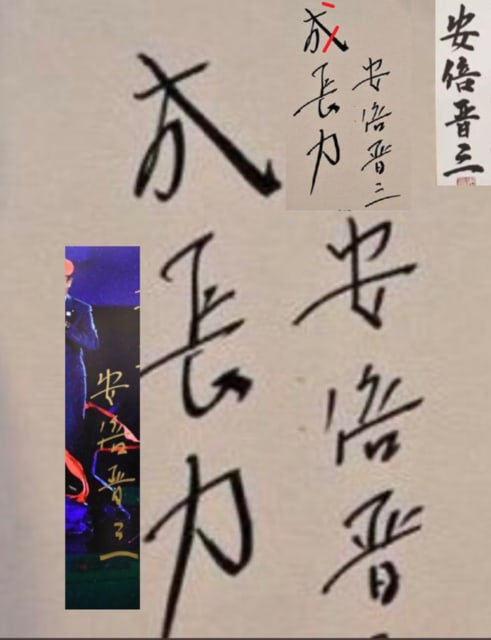 成長力
安倍晋
成長力
安倍晋三
安倍晋三
安倍晋三